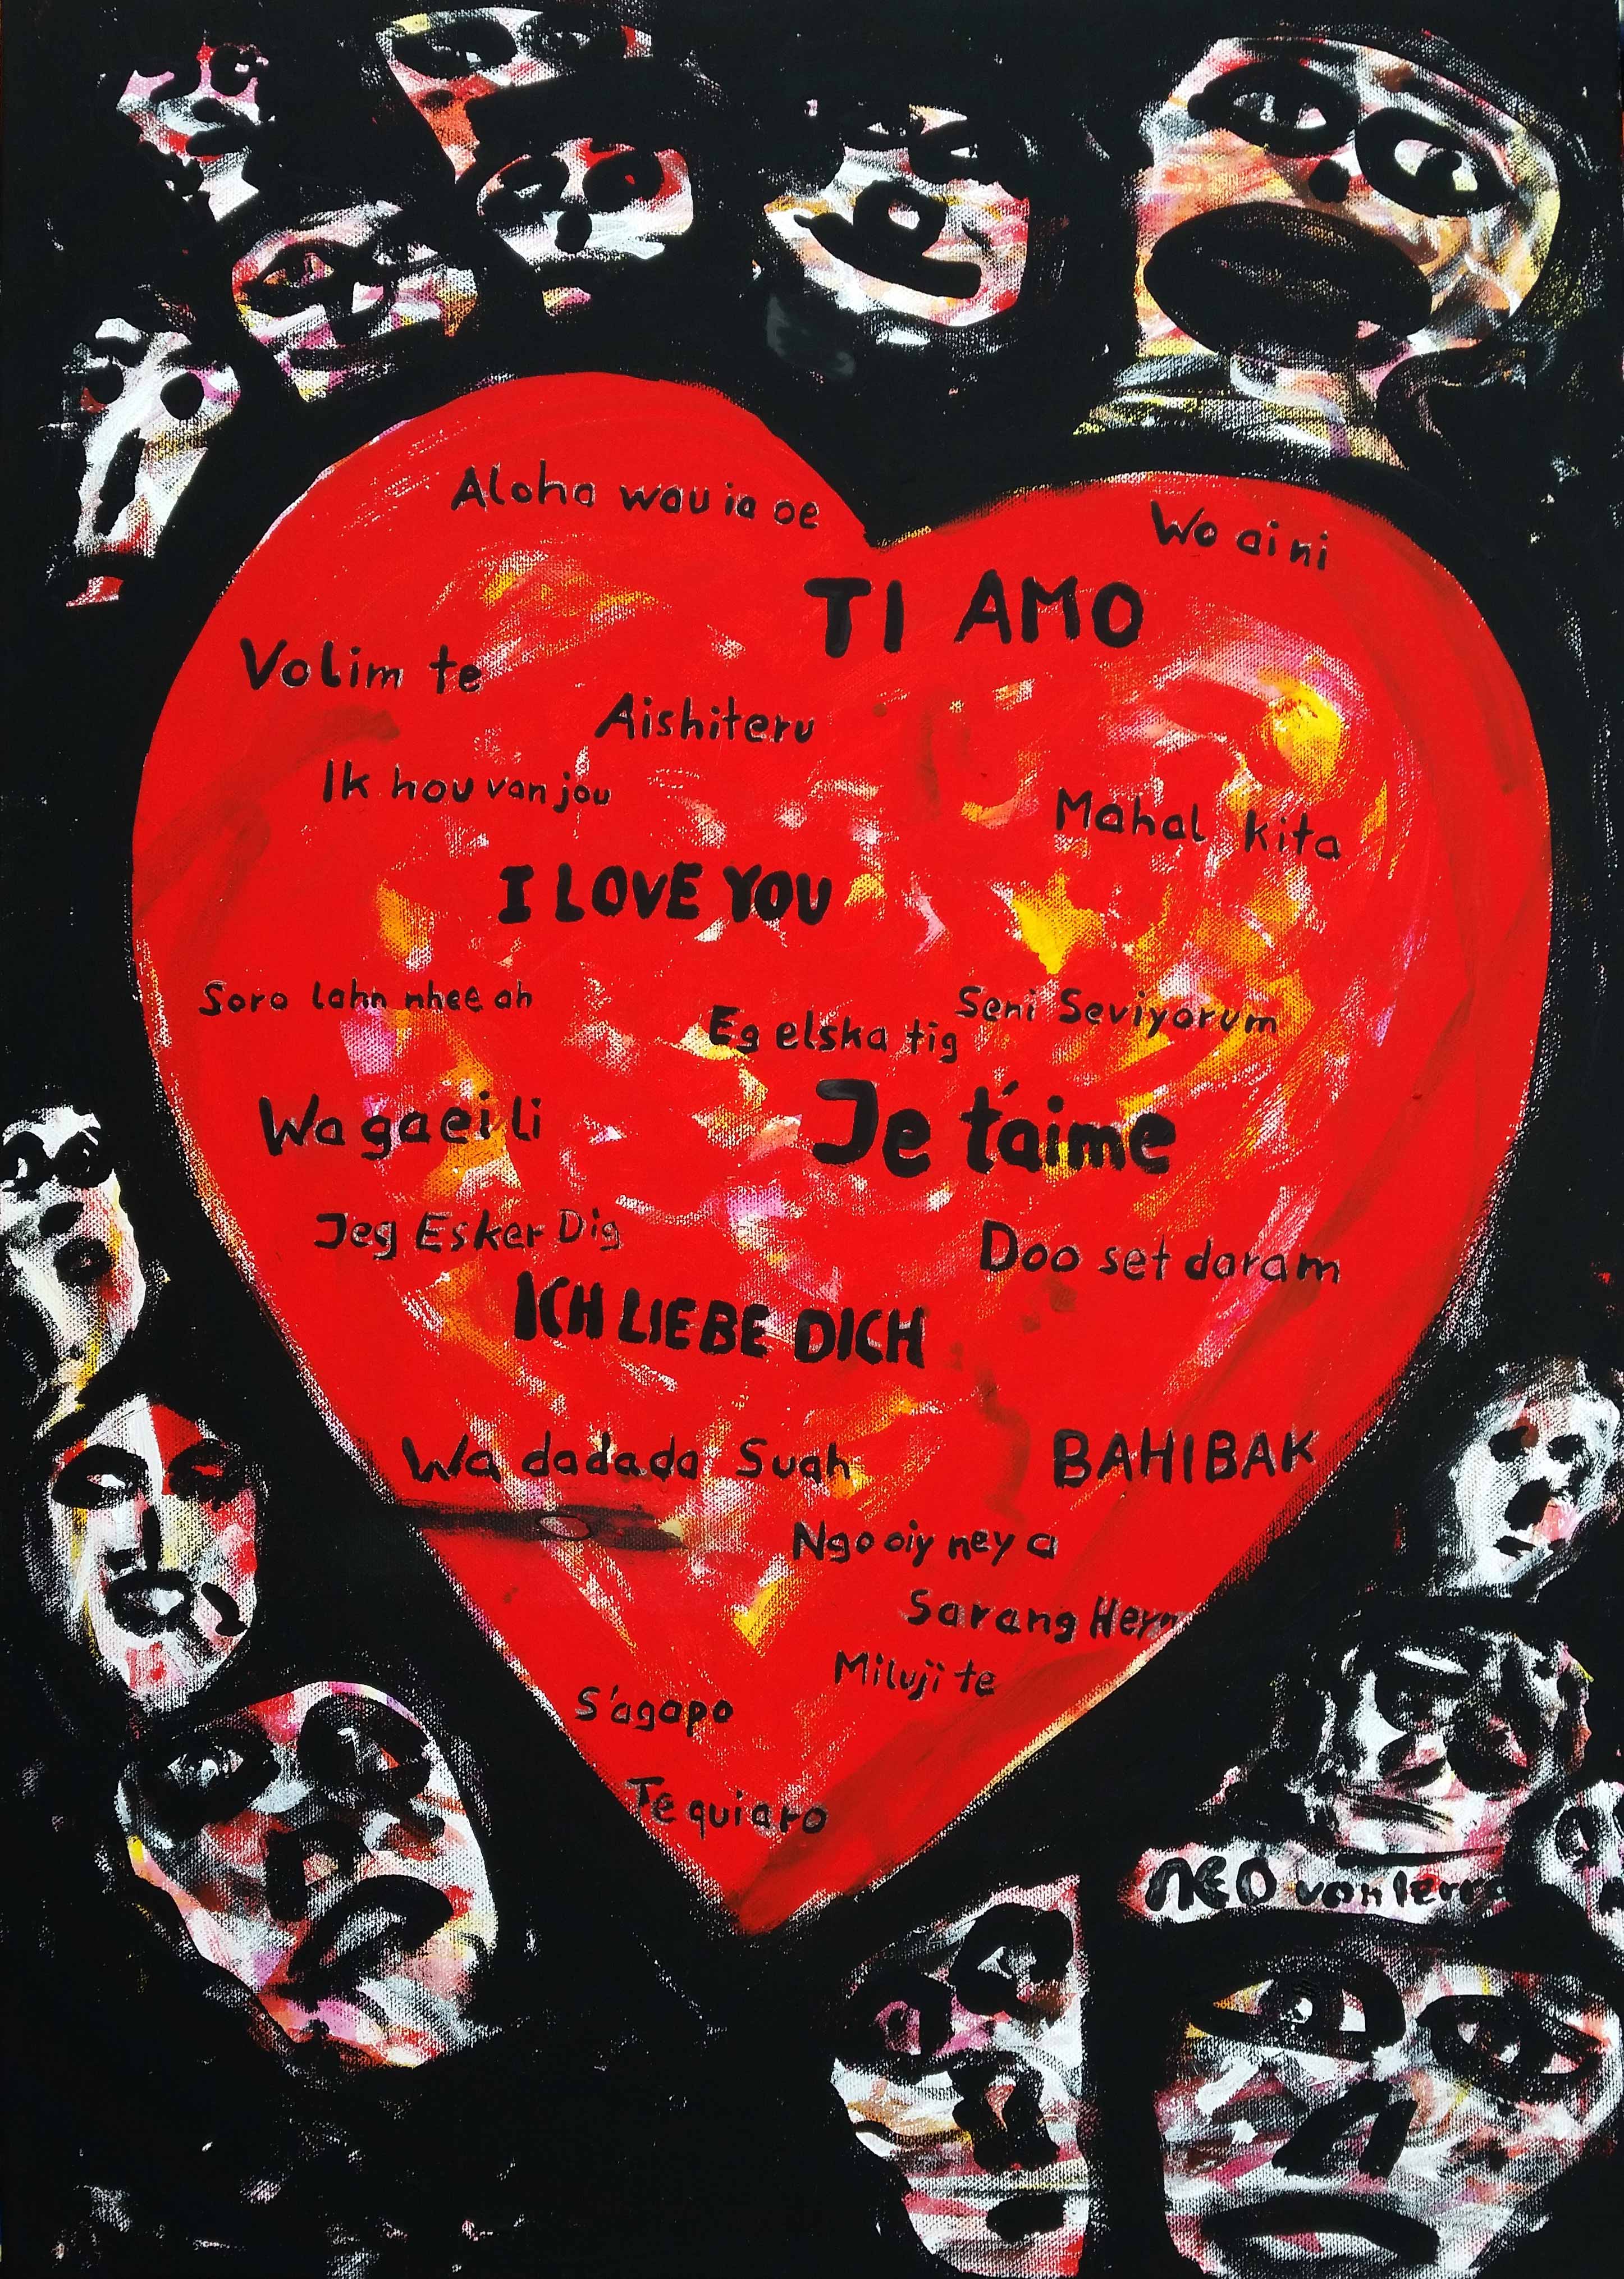 Aloha wau ia oe
Wo ai ni
TI AMO
Volim te
Aishiteru
Ik hou van jou
Mahal kita
I LOVE YOU
Soro lahn nhee ah
Seni Seviyorum
Eg elska tig
Wa ga ei li
Je t'aime
Jeg Esker Dig
Doo set daram
ICH LIEBE DICH
Wa dadada Suah
BAHIBAK
Ngo oiy ney a
Sarang Heyo
Miluji te
S'agapo
Te quiaro
NEO van